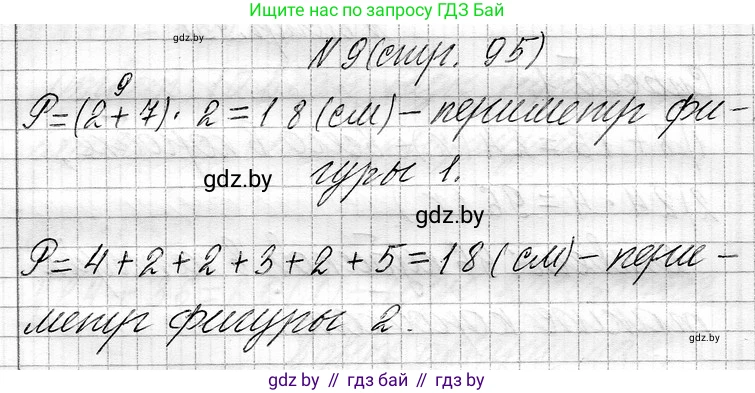 Ищите нас по запросу ГДЗ Бай
gdz.by
№ 9 (стр. 95)
9
P=(2+7)·2=18(см)-периметр фи-
gdz.by
гуры 1.
gdz.by
P=4+2+2+3+2+5=18(см)-пери-
метр фигуры 2.
gdz.by
gdz.by // гдз бай // gdz.by